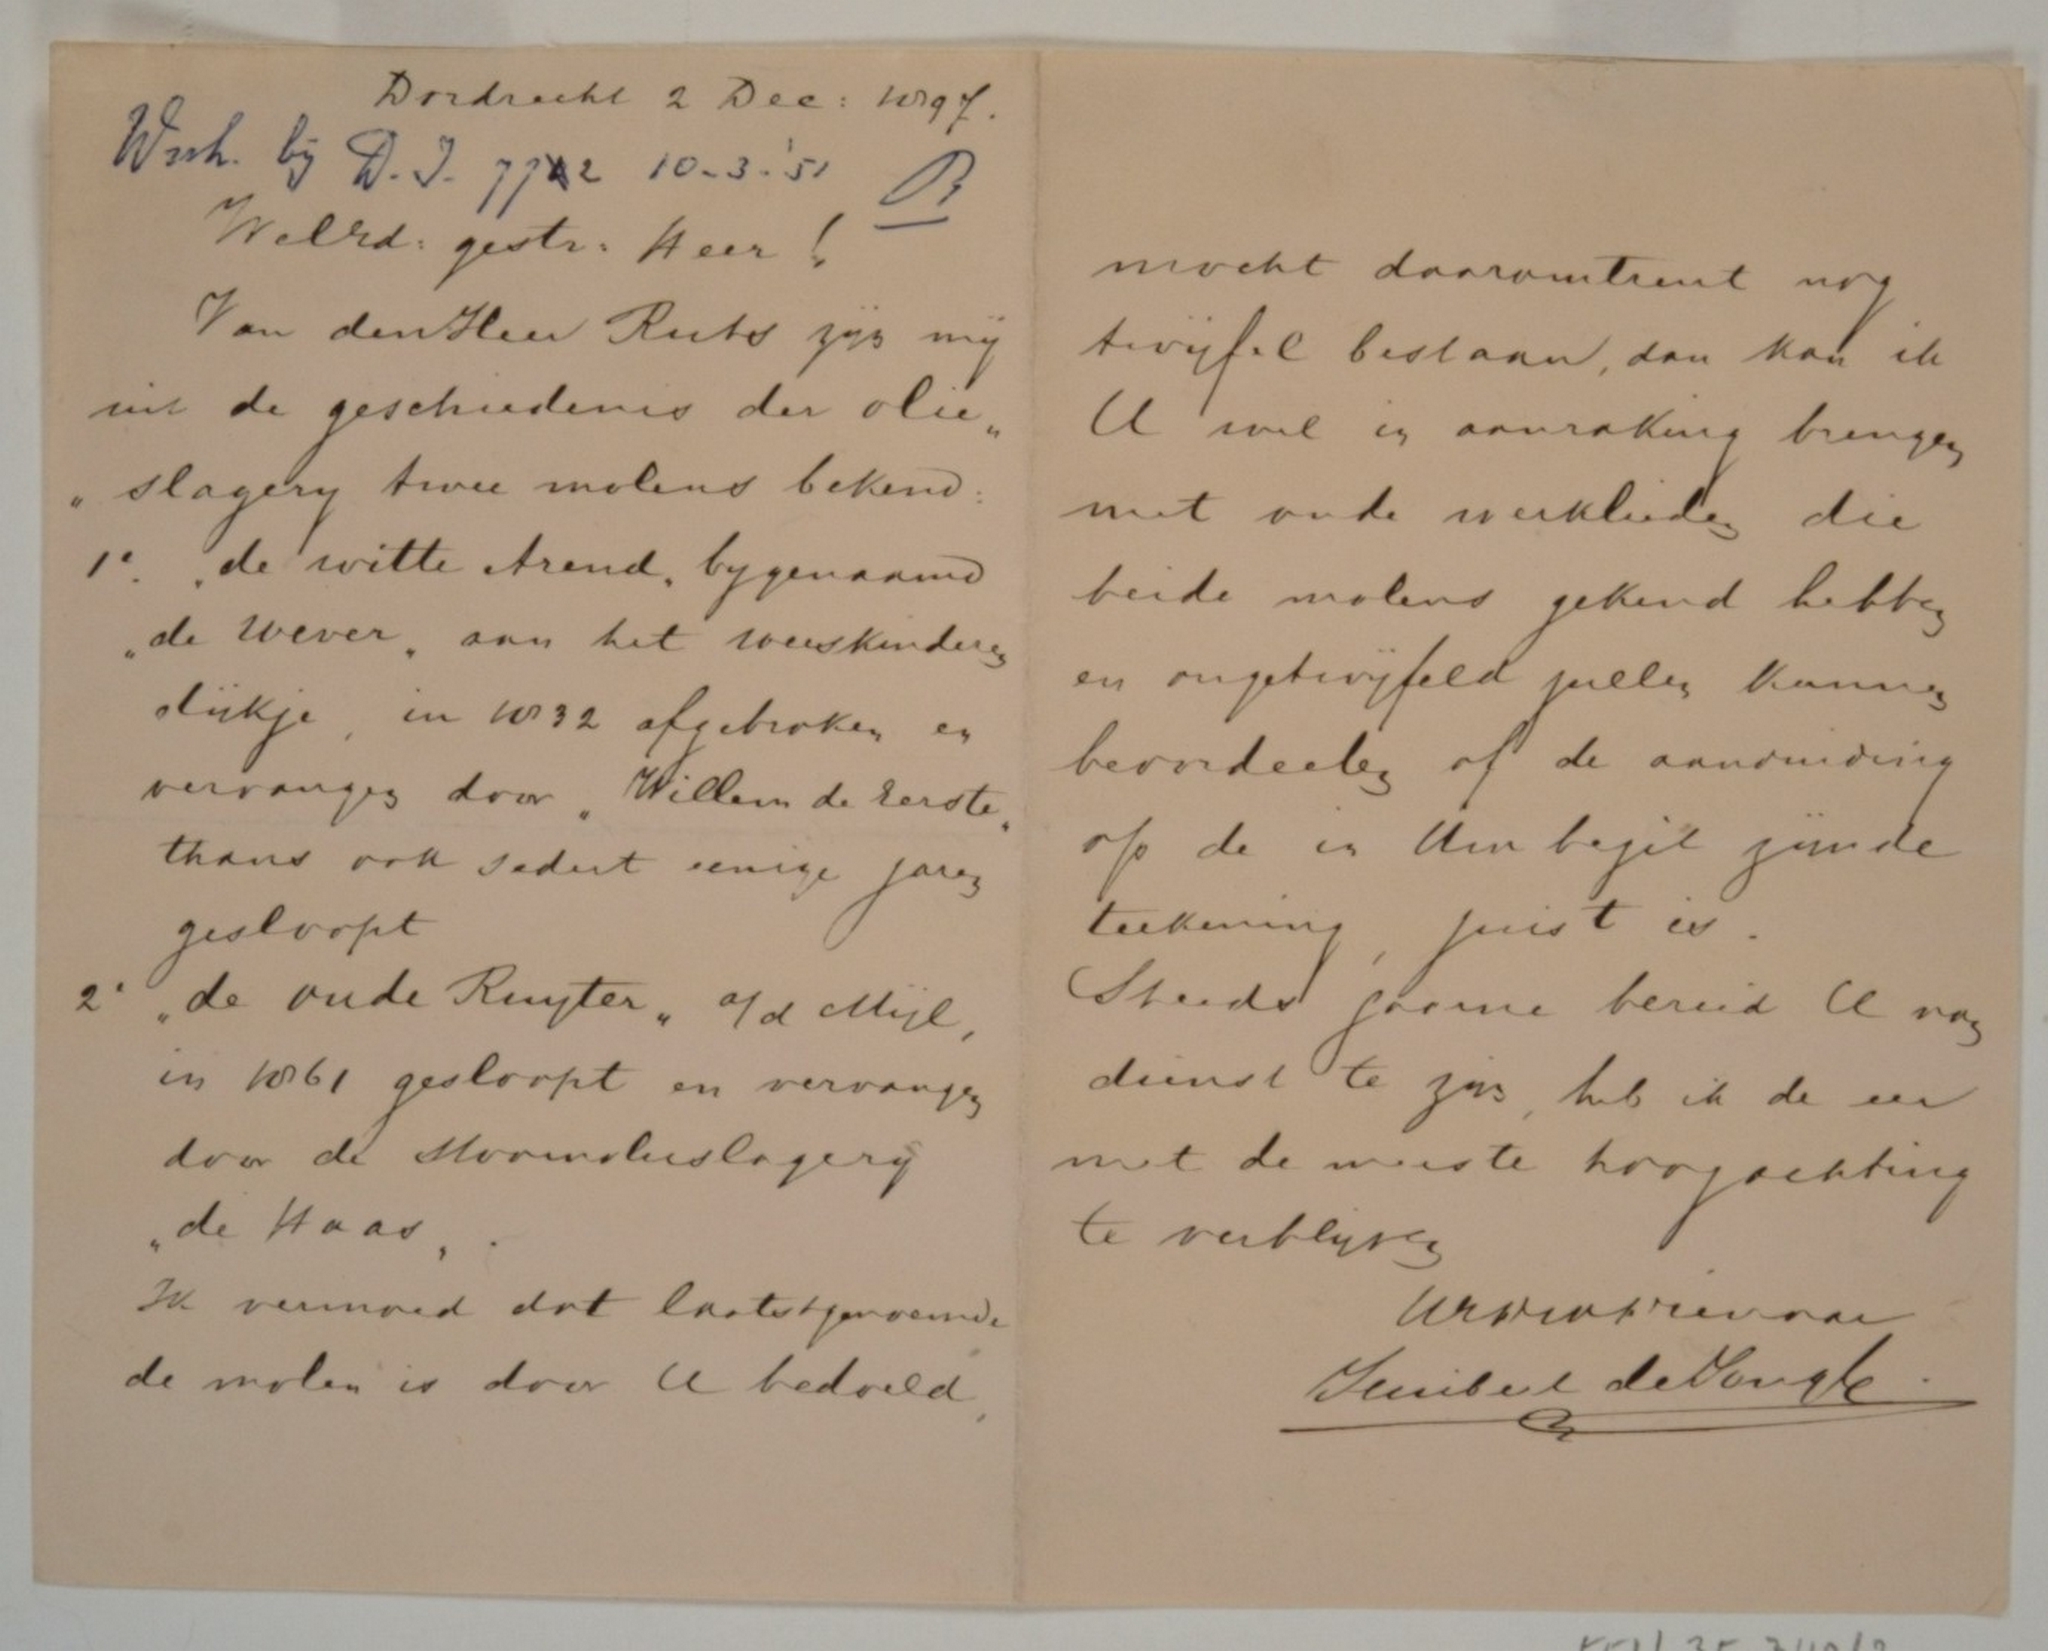 Dordrecht 2 Dec: 1897.
bij D.I. 10-3-'51
WelEd: gestr: Heer!
Van den Heer Ruts zijn mij
uit de geschiedenis der olie„
„slagery twee molens bekend:
1°. „de witte Arend„ bygenaamd
„de Wever„ aan het weeskinderen
dijkje, in 1832 afgebroken en
vervangen door „Willem de Eerste„
thans ook sedert eenige jaren
gesloopt
2° „de oude Ruyter„ a/d Mijl,
in 1861 gesloopt en vervangen
door de Stoomolieslagerij
„de Haas„.
Ik vermoed dat laatstgenoemde
de molen is door U bedoeld,
mocht daaromtrent nog
twijfel bestaan, dan kan ik
U wel in aanraking brengen
met oude werklieden die
beide molens gekend hebben
en ongetwijfeld zullen kunnen
beoordeelen of de aanduiding
op de in Uw bezit zijnde
teekening, juist is.
Steeds gaarne bereid U van
dienst te zijn, heb ik de eer
met de meeste hoogachting
te verblijven
Uw dienaar
de Jongh.